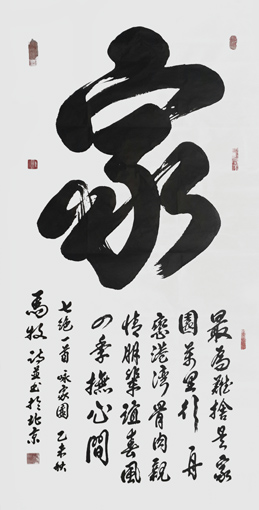 家
最為難捨是家
園萬里行舟
戀港灣骨肉親
情朋輩誼春風
四季撫心間
七絕一首 咏家園 乙未秋
馬牧诗並书於北京